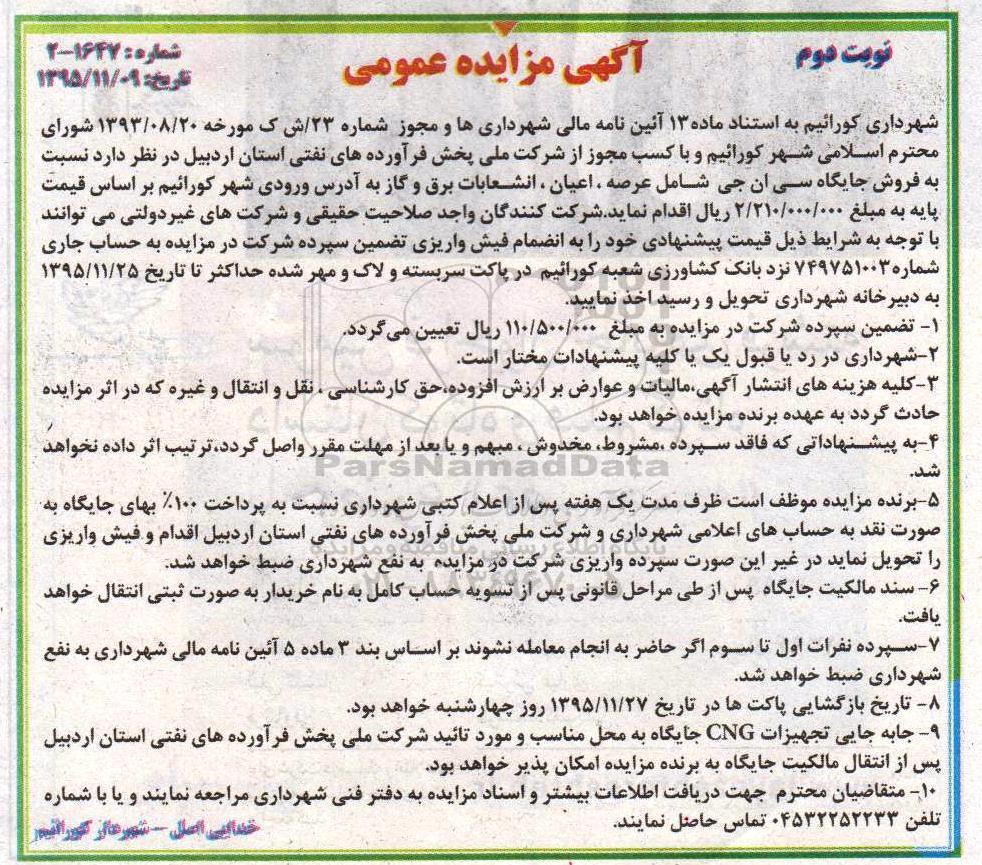 نوبت دوم
آگهی مزایده عمومی
شماره: ۱۶۴۷-۲
تاریخ: ۱۳۹۵/۱۱/۰۹
شهرداری کورائیم به استناد ماده۱۳ آئین نامه مالی شهرداری ها و مجوز شماره ۲۳/ش ک مورخه ۱۳۹۳/۰۸/۲۰ شورای
محترم اسلامی شهر کورائیم و با کسب مجوز از شرکت ملی پخش فرآورده های نفتی استان اردبیل در نظر دارد نسبت
به فروش جایگاه سی ان جی شامل عرصه ، اعیان ، انشعابات برق و گاز به آدرس ورودی شهر کورائیم بر اساس قیمت
پایه به مبلغ ۲/۲۱۰/۰۰۰/۰۰۰ ریال اقدام نماید.شرکت کنندگان واجد صلاحیت حقیقی و شرکت های غیردولتی می توانند
با توجه به شرایط ذیل قیمت پیشنهادی خود را به انضمام فیش واریزی تضمین سپرده شرکت در مزایده به حساب جاری
شماره۷۴۹۷۵۱۰۰۳ نزد بانک کشاورزی شعبه کورائیم در پاکت سربسته و لاک و مهر شده حداکثر تا تاریخ ۱۳۹۵/۱۱/۲۵
به دبیرخانه شهرداری تحویل و رسید اخذ نمایید.
۱- تضمین سپرده شرکت در مزایده به مبلغ ۱۱۰/۵۰۰/۰۰۰ ریال تعیین می‌گردد.
۲-شهرداری در رد یا قبول یک یا کلیه پیشنهادات مختار است.
۳-کلیه هزینه های انتشار آگهی،مالیات و عوارض بر ارزش افزوده،حق کارشناسی ، نقل و انتقال و غیره که در اثر مزایده
حادث گردد به عهده برنده مزایده خواهد بود.
۴-به پیشنهاداتی که فاقد سپرده ،مشروط، مخدوش ، مبهم و یا بعد از مهلت مقرر واصل گردد،ترتیب اثر داده نخواهد
شد.
ParsNamadData
۵-برنده مزایده موظف است ظرف مدت یک هفته پس از اعلام کتبی شهرداری نسبت به پرداخت ۱۰۰٪ بهای جایگاه به
صورت نقد به حساب های اعلامی شهرداری و شرکت ملی پخش فرآورده های نفتی استان اردبیل اقدام و فیش واریزی
را تحویل نماید در غیر این صورت سپرده واریزی شرکت در مزایده به نفع شهرداری ضبط خواهد شد.
۶- سند مالکیت جایگاه پس از طی مراحل قانونی پس از تسویه حساب کامل به نام خریدار به صورت ثبتی انتقال خواهد
یافت.
۷-سپرده نفرات اول تا سوم اگر حاضر به انجام معامله نشوند بر اساس بند ۳ ماده ۵ آئین نامه مالی شهرداری به نفع
شهرداری ضبط خواهد شد.
۸- تاریخ بازگشایی پاکت ها در تاریخ ۱۳۹۵/۱۱/۲۷ روز چهارشنبه خواهد بود.
۹- جابه جایی تجهیزات CNG جایگاه به محل مناسب و مورد تائید شرکت ملی پخش فرآورده های نفتی استان اردبیل
پس از انتقال مالکیت جایگاه به برنده مزایده امکان پذیر خواهد بود.
۱۰- متقاضیان محترم جهت دریافت اطلاعات بیشتر و اسناد مزایده به دفتر فنی شهرداری مراجعه نمایند و یا با شماره
تلفن ۰۴۵۳۲۲۵۲۲۳۳ تماس حاصل نمایند.
خدایی اصل – شهردار کورائیم